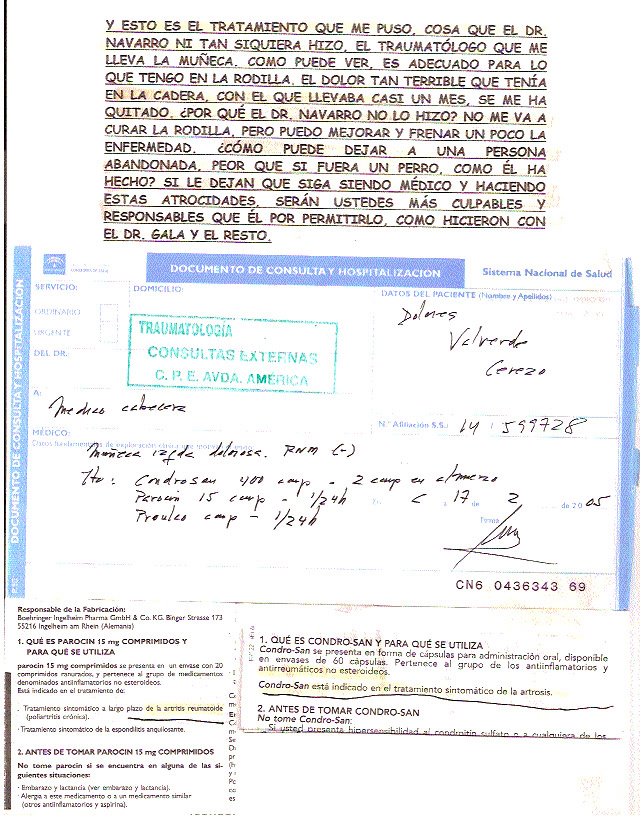 Y ESTO ES EL TRATAMIENTO QUE ME PUSO, COSA QUE EL DR.
NAVARRO NI TAN SIQUIERA HIZO, EL TRAUMATÓLOGO QUE ME
LLEVA LA MUÑECA. COMO PUEDE VER, ES ADECUADO PARA LO
QUE TENGO EN LA RODILLA. EL DOLOR TAN TERRIBLE QUE TENÍA
EN LA CADERA, CON EL QUE LLEVABA CASI UN MES, SE ME HA
QUITADO. ¿POR QUÉ EL DR. NAVARRO NO LO HIZO? NO ME VA A
CURAR LA RODILLA, PERO PUEDO MEJORAR Y FRENAR UN POCO LA
ENFERMEDAD. ¿CÓMO PUEDE DEJAR A UNA PERSONA
ABANDONADA, PEOR QUE SI FUERA UN PERRO, COMO ÉL HA
HECHO? SI LE DEJAN QUE SIGA SIENDO MÉDICO Y HACIENDO
ESTAS ATROCIDADES, SERÁN USTEDES MÁS CULPABLES Y
RESPONSABLES QUE ÉL POR PERMITIRLO, COMO HICIERON CON
EL DR. GALA Y EL RESTO.
DOCUMENTO DE CONSULTA Y HOSPITALIZACION
Sistema Nacional de Salud
DOCUMENTO DE CONSULTA Y HOSPITALIZACIÓN
SERVICIO:
DOMICILIO:
DATOS DEL PACIENTE (Nombre y Apellidos)
ORDINARIO
URGENTE
DEL DR.
TRAUMATOLOGÍA
CONSULTAS EXTERNAS
C. P. E. AVDA. AMÉRICA
Dolores
Valverde
Cerezo
A:
Medico cabecera
N.º Afiliación S.S.: 14 599728
MÉDICO:
Muñeca izqda dolorosa. RNM (-)
Tto: Condrosan 400 comp - 2 comp en almuerzo
Parocin 15 comp - 1/24h
comp - 1/24h
a 17 de 2 de 2005
Firma
CN6 0436343 69
Responsable de la Fabricación:
Boehringer Ingelheim Pharma GmbH & Co. KG. Binger Strasse 173
55216 Ingelheim am Rhein (Alemania)
1. QUÉ ES PAROCIN 15 mg COMPRIMIDOS Y
PARA QUÉ SE UTILIZA
parocin 15 mg comprimidos se presenta en un envase con 20
comprimidos ranurados, y pertenece al grupo de medicamentos
denominados antiinflamatorios no esteroideos.
Está indicado en el tratamiento de:
· Tratamiento sintomático a largo plazo de la artritis reumatoide
(poliartritis crónica).
· Tratamiento sintomático de la espondilitis anquilosante.
2. ANTES DE TOMAR PAROCIN 15 mg COMPRIMIDOS
No tome parocin si se encuentra en alguna de las si-
guientes situaciones:
· Embarazo y lactancia (ver embarazo y lactancia).
· Alergia a este medicamento o a un medicamento similar
(otros antiinflamatorios y aspirina).
1. QUÉ ES CONDRO-SAN Y PARA QUÉ SE UTILIZA
Condro-San se presenta en forma de cápsulas para administración oral, disponible
en envases de 60 cápsulas. Pertenece al grupo de los antiinflamatorios y
antirreumáticos no esteroideos.
Condro-San está indicado en el tratamiento sintomático de la artrosis.
2. ANTES DE TOMAR CONDRO-SAN
No tome Condro-San:
Si usted presenta hipersensibilidad al condroitín sulfato o a cualquiera de los